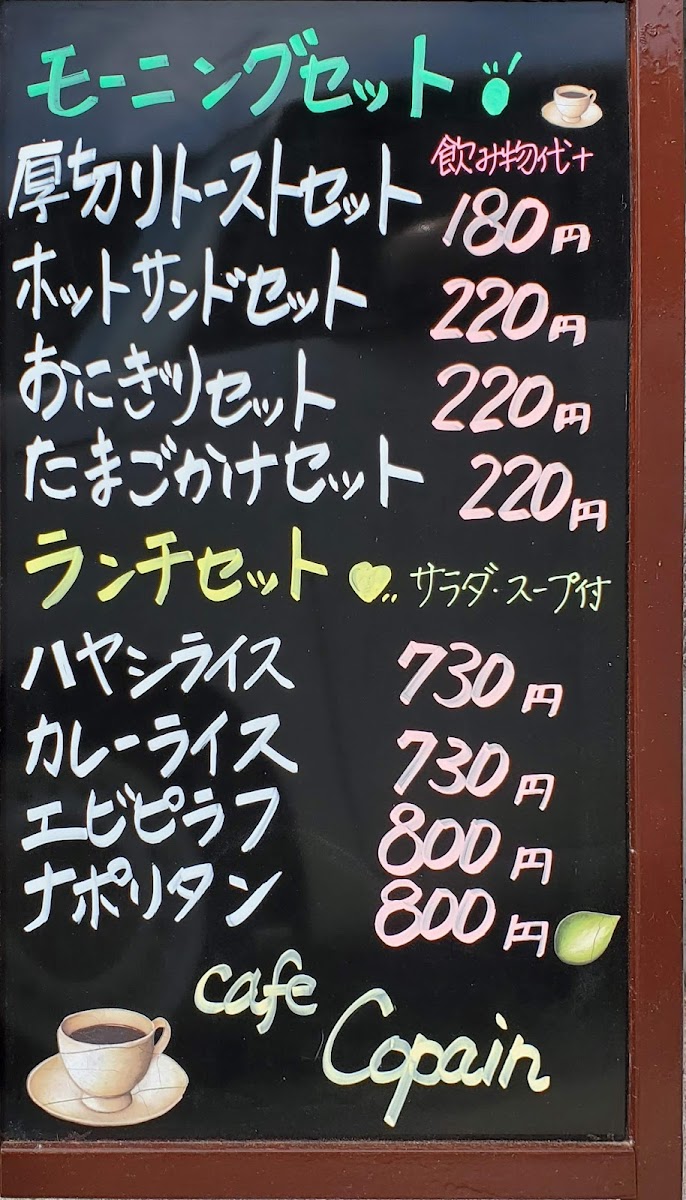 モーニングセット
飲み物代+
厚切りトーストセット 180円
ホットサンドセット 220円
おにぎりセット 220円
たまごかけセット 220円
ランチセット サラダ・スープ付
ハヤシライス 730円
カレーライス 730円
エビピラフ 800円
ナポリタン 800円
cafe
Copain